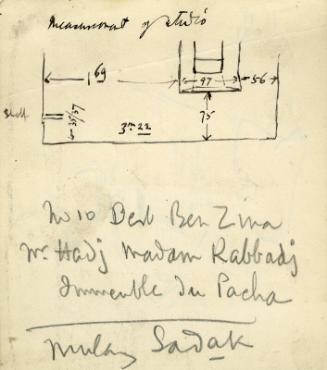 Measurement of studio
1 69
97
56
Shelf
35/37
75
3m 22
No 10 Derb Ben Zina
Mr Hadj Madam Rabbadj
Immeuble du Pacha
Mulay Sadak